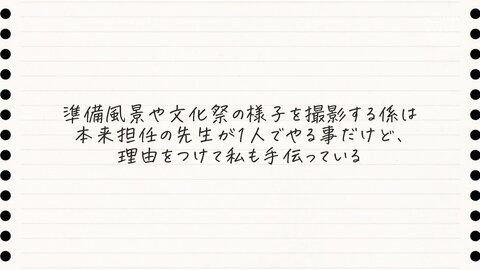 準備風景や文化祭の様子を撮影する係は
本来担任の先生が1人でやる事だけど、
理由をつけて私も手伝っている